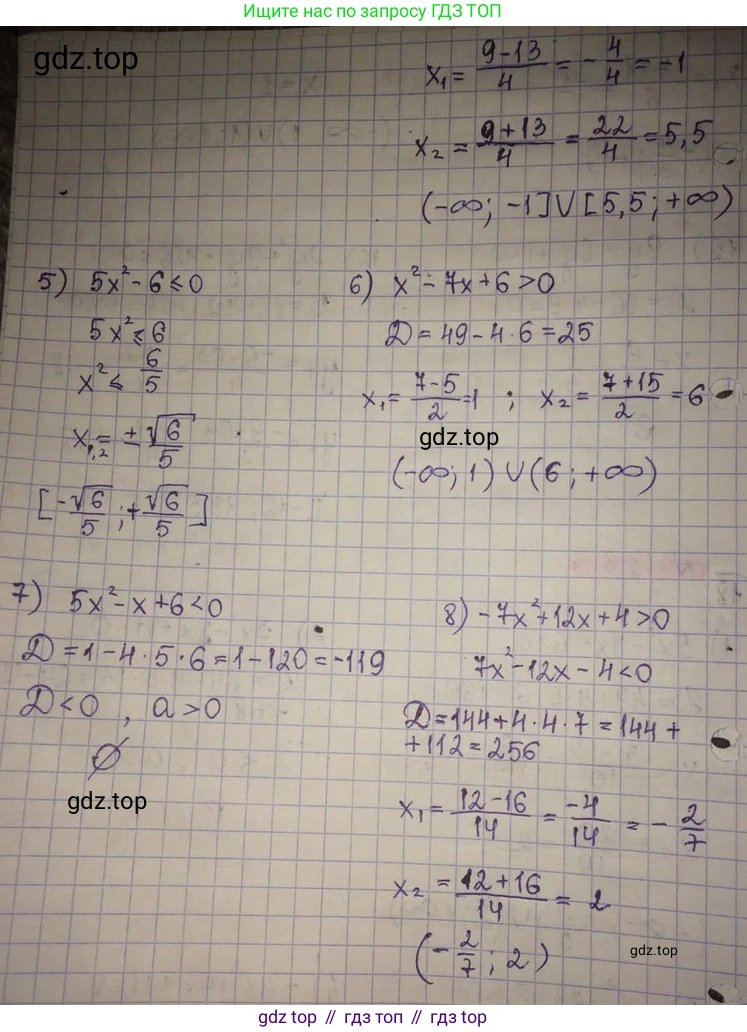 Ищите нас по запросу ГДЗ ТОП
gdz.top
x₁ = (9-13)/4 = -4/4 = -1
x₂ = (9+13)/4 = 22/4 = 5,5
(-∞; -1] ∪ [5,5; +∞)
5) 5x² - 6 ≤ 0
5x² ≤ 6
x² ≤ 6/5
x₁,₂ = ± √6/5
[-√6/5; +√6/5]
6) x² - 7x + 6 > 0
D = 49 - 4·6 = 25
x₁ = (7-5)/2 = 1 ; x₂ = (7+15)/2 = 6
gdz.top
(-∞; 1) ∪ (6; +∞)
7) 5x² - x + 6 < 0
D = 1 - 4·5·6 = 1 - 120 = -119
D < 0 , a > 0
∅
gdz.top
8) -7x² + 12x + 4 > 0
7x² - 12x - 4 < 0
D = 144 + 4·4·7 = 144 +
+ 112 = 256
x₁ = (12-16)/14 = -4/14 = -2/7
x₂ = (12+16)/14 = 2
(-2/7; 2)
gdz.top
gdz top // гдз топ // gdz top // гдз топ